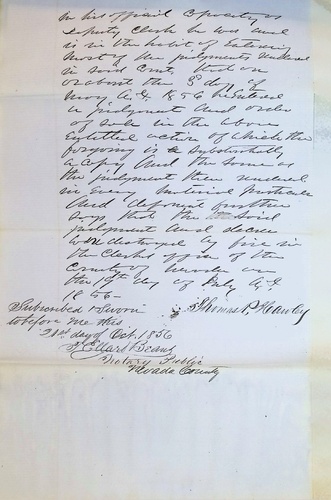 in his official Capacity as
deputy clerk he was and
is in the habit of entering
most of the judgments rendered
in said Court, that on
or about the 3d day of
May A.D. 1856 he entered
a judgment and order
of sale in the above
entitled action of which the
forgoing is a substantially
a copy and the same as
the judgment then rendered
in every material particular
And deponent further
says that the said
judgment and decree
was destroyed by fire in
the Clerks office of the
County of Nevada on
the 19th day of July A.D
1856—
Subscribed & Sworn
Thomas P. Hawley
to before me this
21st day of Oct. 1856
Ellard Beans
Notary Public
Nevada County